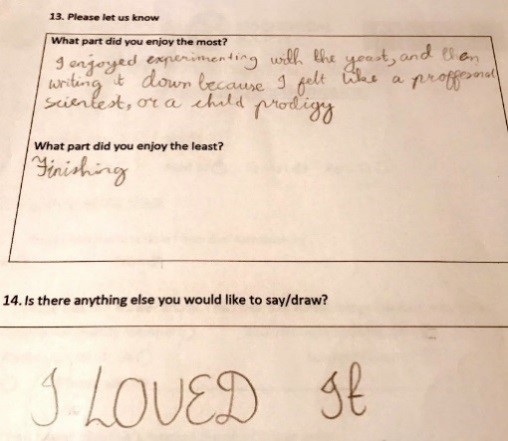 13. Please let us know
What part did you enjoy the most?
I enjoyed experimenting with the yeast, and then
writing it down because I felt like a proffesonal
scientest, or a child prodigy
What part did you enjoy the least?
Finishing
14. Is there anything else you would like to say/draw?
I LOVED It